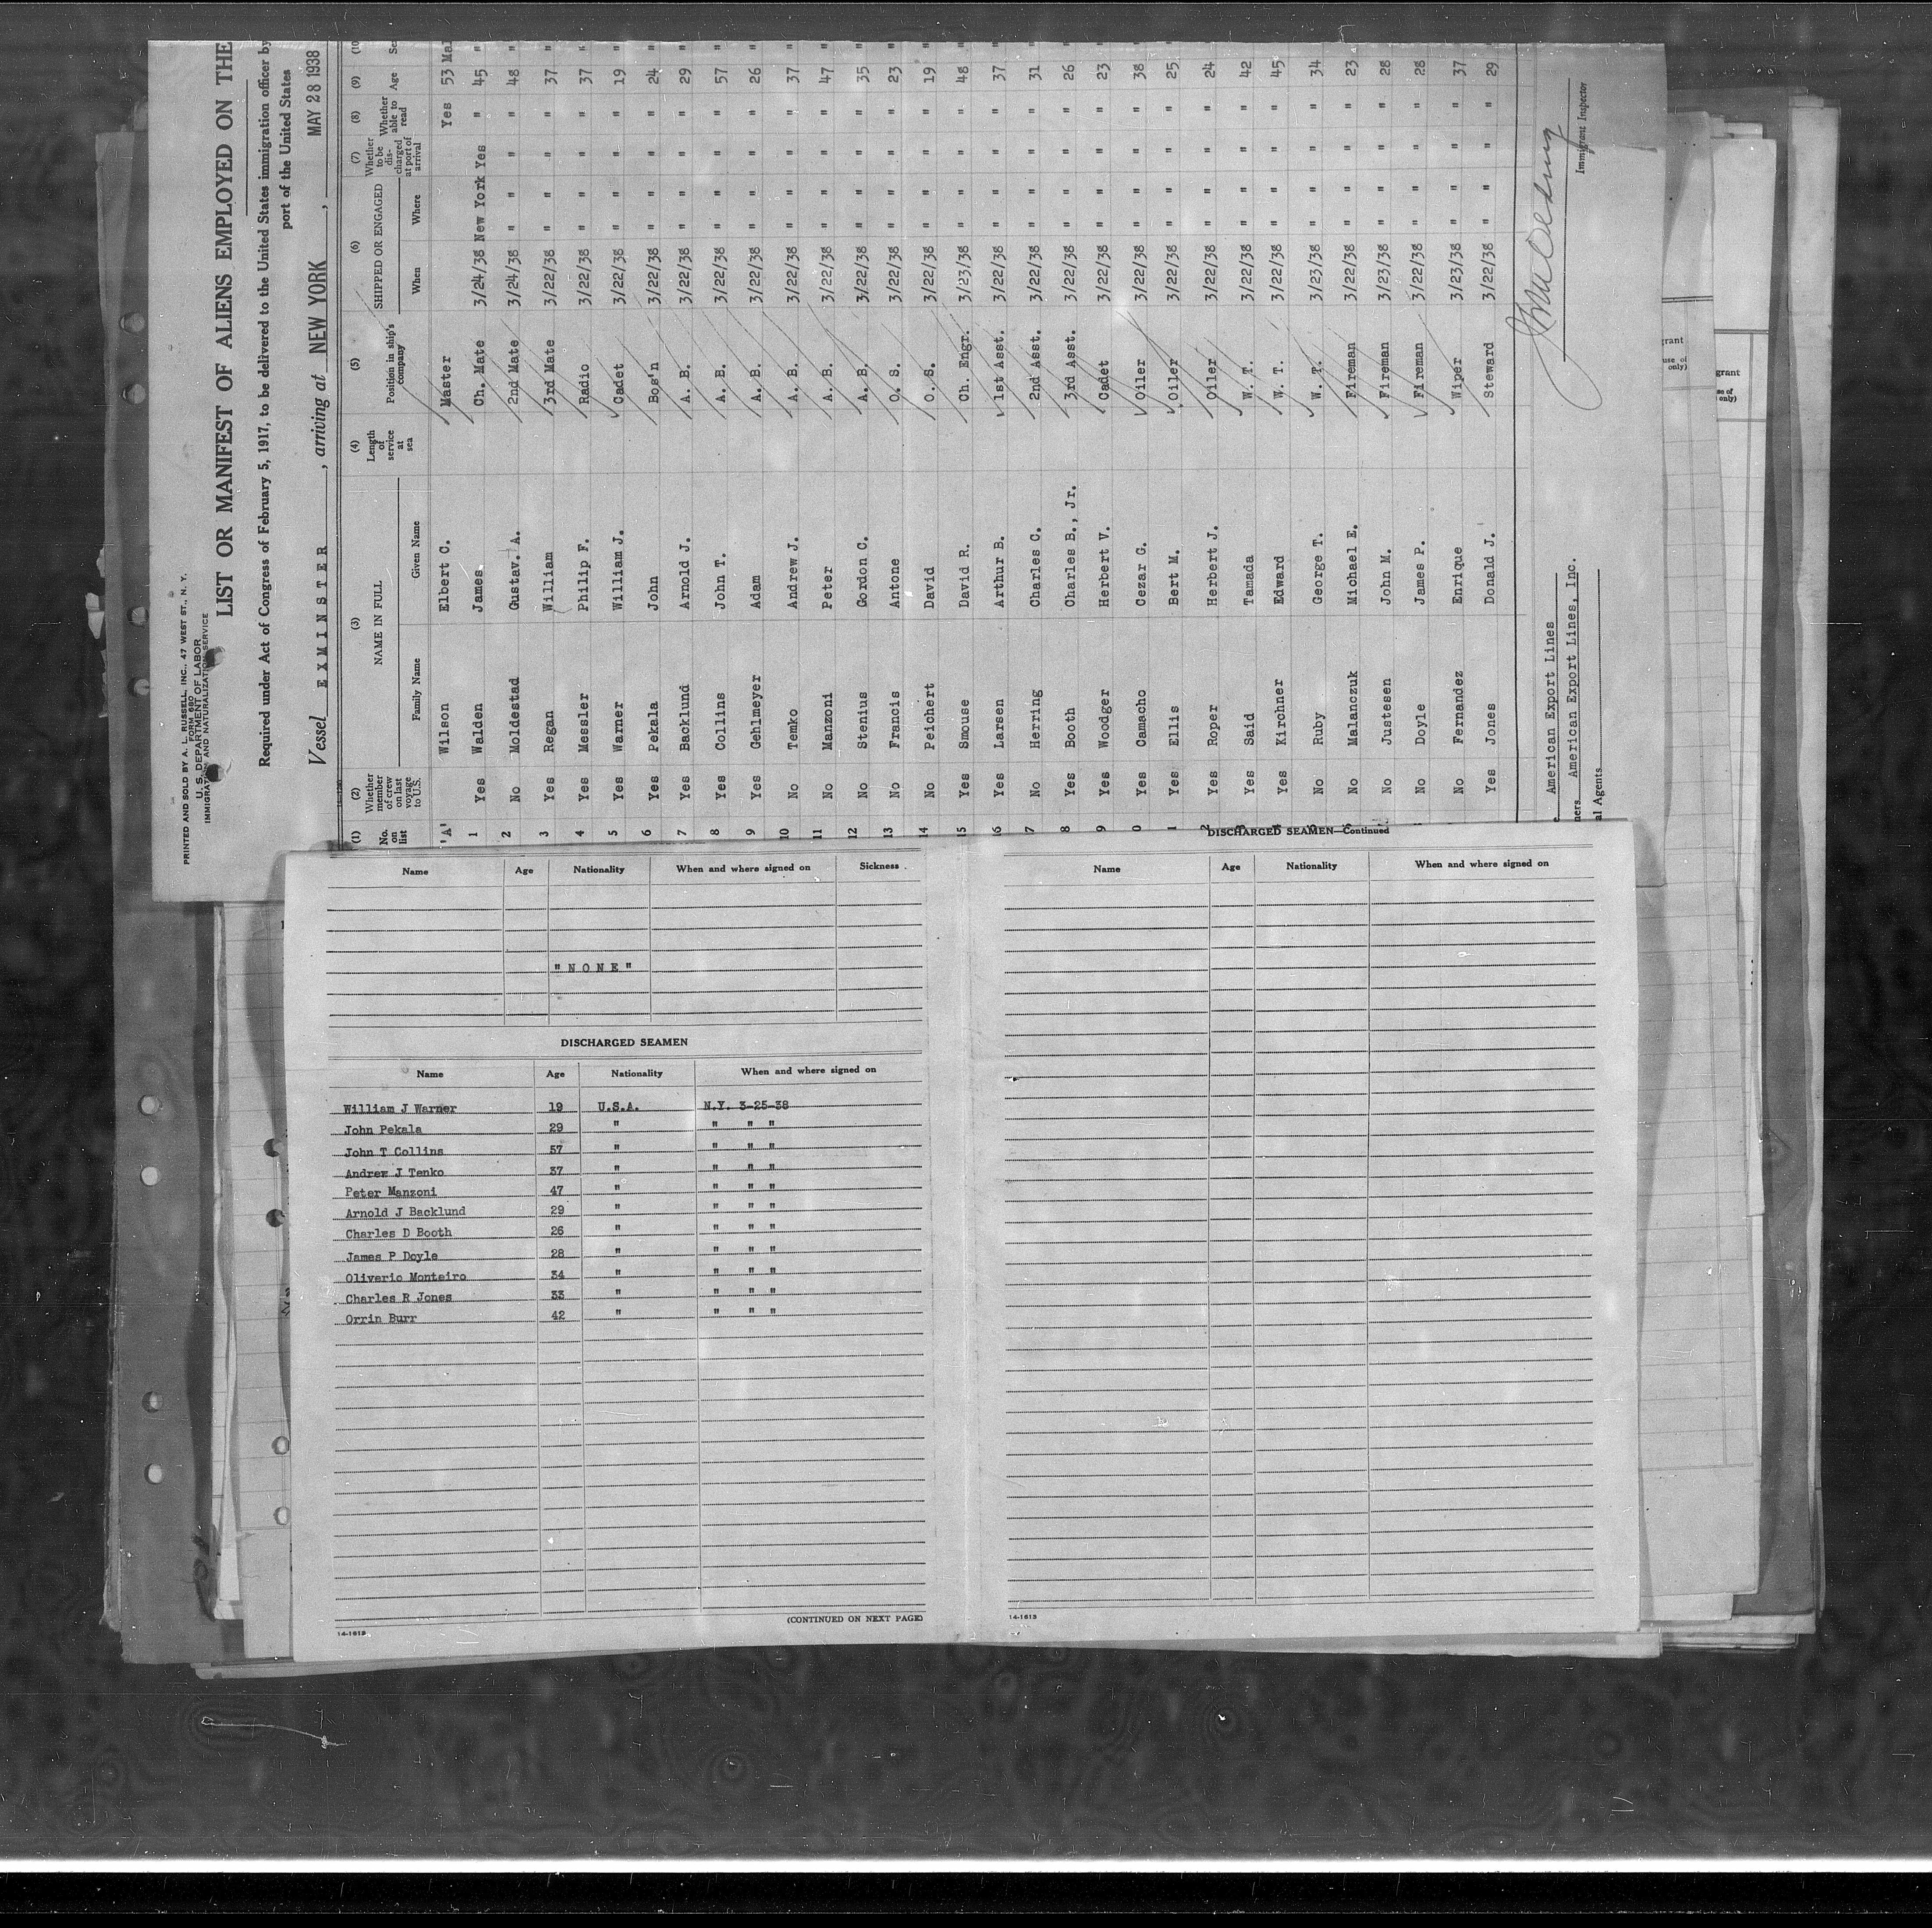 PRINTED AND SOLD BY A. L. RUSSELL, INC., 47 WEST ST., N. Y.
FORM 680
U. S. DEPARTMENT OF LABOR
IMMIGRATION AND NATURALIZATION SERVICE
LIST OR MANIFEST OF ALIENS EMPLOYED ON THE
Required under Act of Congress of February 5, 1917, to be delivered to the United States immigration officer by
port of the United States
Vessel EXMINSTER, arriving at NEW YORK, MAY 28 1938
(1) (2) (3) (4) (5) (6) (7) (8) (9) (10
No. on list Whether member of crew on last voyage to U.S. NAME IN FULL Length of service at sea Position in ship's company SHIPPED OR ENGAGED Whether to be discharged at port of arrival Whether able to read Age Se
Family Name Given Name When Where
'A' Wilson Elbert C. Master Yes 53 Mal
1 Yes Walden James Ch. Mate 3/24/38 New York Yes " 45 "
2 No Moldestad Gustav. A. 2nd Mate 3/24/38 " " " " 48 "
3 Yes Regan William 3rd Mate 3/22/38 " " " " 37 "
4 Yes Messler Philip F. Radio 3/22/38 " " " " 37 "
5 Yes Warner William J. Cadet 3/22/38 " " " " 19 "
6 Yes Pekala John Bos'n 3/22/38 " " " " 24 "
7 Yes Backlund Arnold J. A. B. 3/22/38 " " " " 29 "
8 Yes Collins John T. A. B. 3/22/38 " " " " 57 "
9 Yes Gehlmeyer Adam A. B. 3/22/38 " " " " 26 "
10 No Temko Andrew J. A. B. 3/22/38 " " " " 37 "
11 No Manzoni Peter A. B. 3/22/38 " " " " 47 "
12 No Stenius Gordon C. A. B. 3/22/38 " " " " 35 "
13 No Francis Antone O. S. 3/22/38 " " " " 23 "
14 No Peichert David O. S. 3/22/38 " " " " 19 "
15 Yes Smouse David R. Ch. Engr. 3/23/38 " " " " 48 "
16 Yes Larsen Arthur B. 1st Asst. 3/22/38 " " " " 37 "
7 No Herring Charles C. 2nd Asst. 3/22/38 " " " " 31 "
8 Yes Booth Charles B., Jr. 3rd Asst. 3/22/38 " " " " 26 "
9 Yes Woodger Herbert V. Cadet 3/22/38 " " " " 23 "
0 Yes Camacho Cezar G. Oiler 3/22/38 " " " " 38 "
1 Yes Ellis Bert M. Oiler 3/22/38 " " " " 25 "
2 Yes Roper Herbert J. Oiler 3/22/38 " " " " 24 "
3 Yes Said Tamada W. T. 3/22/38 " " " " 42 "
4 Yes Kirchner Edward W. T. 3/22/38 " " " " 45 "
No Ruby George T. W. T. 3/23/38 " " " " 34 "
No Malanczuk Michael E. Fireman 3/22/38 " " " " 23 "
No Justesen John M. Fireman 3/23/38 " " " " 28 "
No Doyle James P. Fireman 3/22/38 " " " " 28 "
No Fernandez Enrique Wiper 3/23/38 " " " " 37 "
Yes Jones Donald J. Steward 3/22/38 " " " " 29 "
American Export Lines
ners American Export Lines, Inc.
al Agents
Immigrant Inspector
grant
use of
only)
grant
se of
only)
Name Age Nationality When and where signed on Sickness
"NONE"
DISCHARGED SEAMEN
Name Age Nationality When and where signed on
William J Warner 19 U.S.A. N.Y. 3-25-38
John Pekala 29 " " " "
John T Collins 57 " " " "
Andrew J Tenko 37 " " " "
Peter Manzoni 47 " " " "
Arnold J Backlund 29 " " " "
Charles D Booth 26 " " " "
James P Doyle 28 " " " "
Oliverio Monteiro 34 " " " "
Charles R Jones 33 " " " "
Orrin Burr 42 " " " "
(CONTINUED ON NEXT PAGE)
14-1613
DISCHARGED SEAMEN—Continued
Name Age Nationality When and where signed on
14-1613